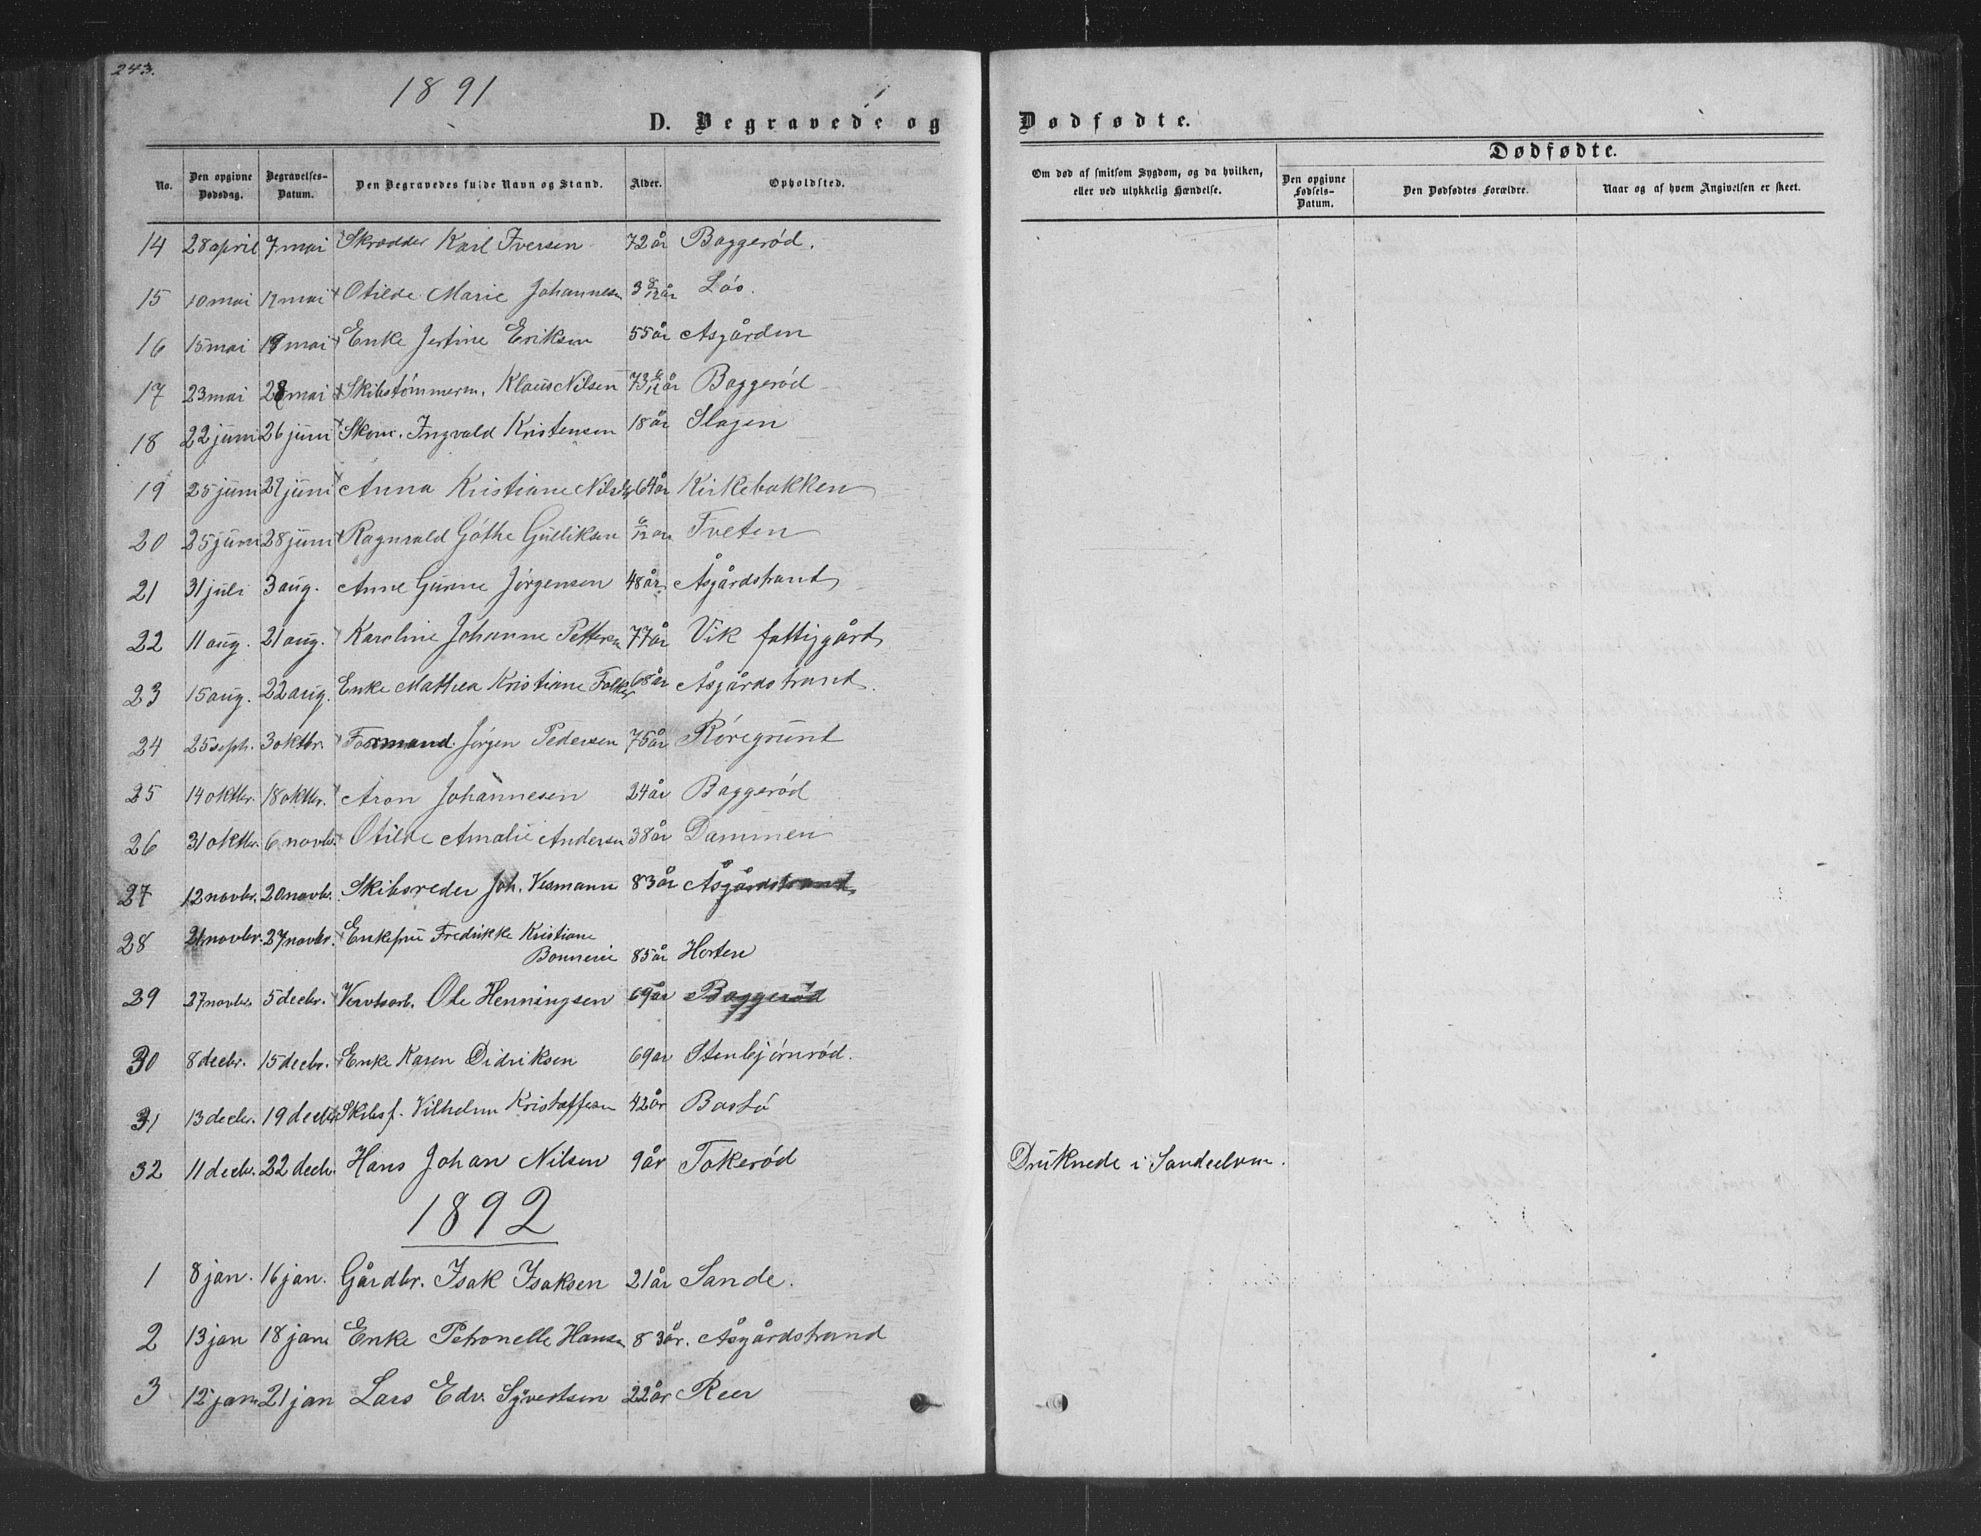 243.
1891
D. Begravede og
Dødfødte.
No. Den opgivne Dødsdag. Begravelses-Datum. Den Begravedes fulde Navn og Stand. Alder. Opholdsted.
Om død af smitsom Sygdom, og da hvilken, eller ved ulykkelig Hændelse.
Dødfødte.
Den opgivne Fødsels-Datum. Den Dødfødtes Forældre. Naar og af hvem Angivelsen er skeet.
14 28 april 7 mai Skrædder Karl Iversen 72 år Baggerød.
15 10 mai 17 mai Otilde Marie Johannesen 3 8/12 år Løs.
16 15 mai 19 mai Enke Jertine Eriksen 55 år Asgården
17 23 mai 28 mai Skibstømmerm. Klaus Nilsen 73 6/12 år Baggerød
18 22 juni 26 juni Skom. Ingvald Kristensen 18 år Slagen
19 25 juni 27 juni Anna Kristiane 64 år Kirkebakken
20 25 juni 28 juni Ragnvald Göthe Gulliksen 6/12 år Tveten
21 31 juli 3 aug. Anne Gurine Jørgensen 48 år Åsgårdstrand
22 11 aug. 21 aug. Karoline Johanne Pettersen 77 år Vik fattiggård
23 15 aug. 22 aug. Enke Mathea Kristiane 68 år Åsgårdstrand.
24 25 septr. 3 oktbr. Formand Jørgen Pedersen 75 år Røregrunt
25 14 oktbr. 18 oktbr. Aron Johannesen 24 år Baggerød
26 31 oktbr. 6 novbr. Otilde Amalie Andersen 38 år Dammen
27 12 novbr. 20 novbr. Skibsreder Joh. Vesmann 83 år Åsgårdstrand
28 21 novbr. 27 novbr. Enkefru Fredrikke Kristiane
Bonnevie 85 år Horten
29 27 novbr. 5 decbr. Vervtsarb. Ole Henningsen 69 år Baggerød
30 8 decbr. 15 decbr. Enke Karen Didriksen 69 år Stenbjørnrød.
31 13 decbr. 19 decbr. Skibsf. Vilhelm Kristoffersen 42 år Bastø
32 11 decbr. 22 decbr. Hans Johan Nilsen 9 år Tokerød Druknede i Sandeelven.
1892
1 8 jan. 16 jan. Gårdbr. Isak Isaksen 21 år Sande.
2 13 jan 18 jan Enke Petronelle Hansen 83 år. Åsgårdstrand
3 12 jan 21 jan Lars Edv. Syvertsen 22 år Reer